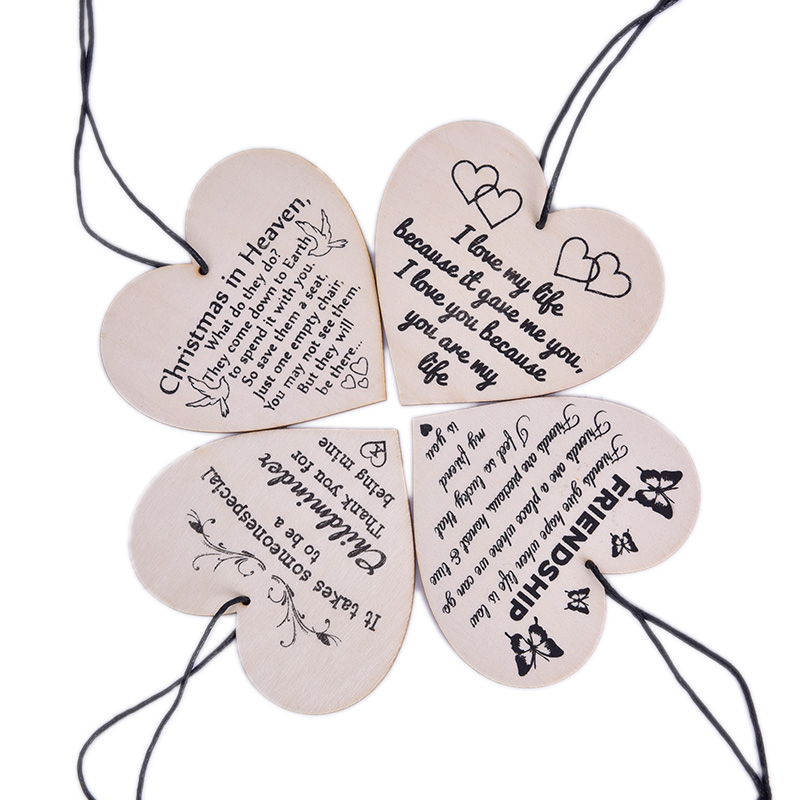 Christmas in Heaven,
What do they do?
They come down to Earth
to spend it with you.
So save them a seat,
Just one empty chair,
You may not see them,
But they will
be there...
I love my life
because it gave me you,
I love you because
you are my
life
It takes someonespecial
to be a
Childminder
Thank you for
being mine
FRIENDSHIP
Friends give hope when life is low
Friends are a place where we can go
Friends are precious, honest & true
I feel so lucky that
my friend
is you